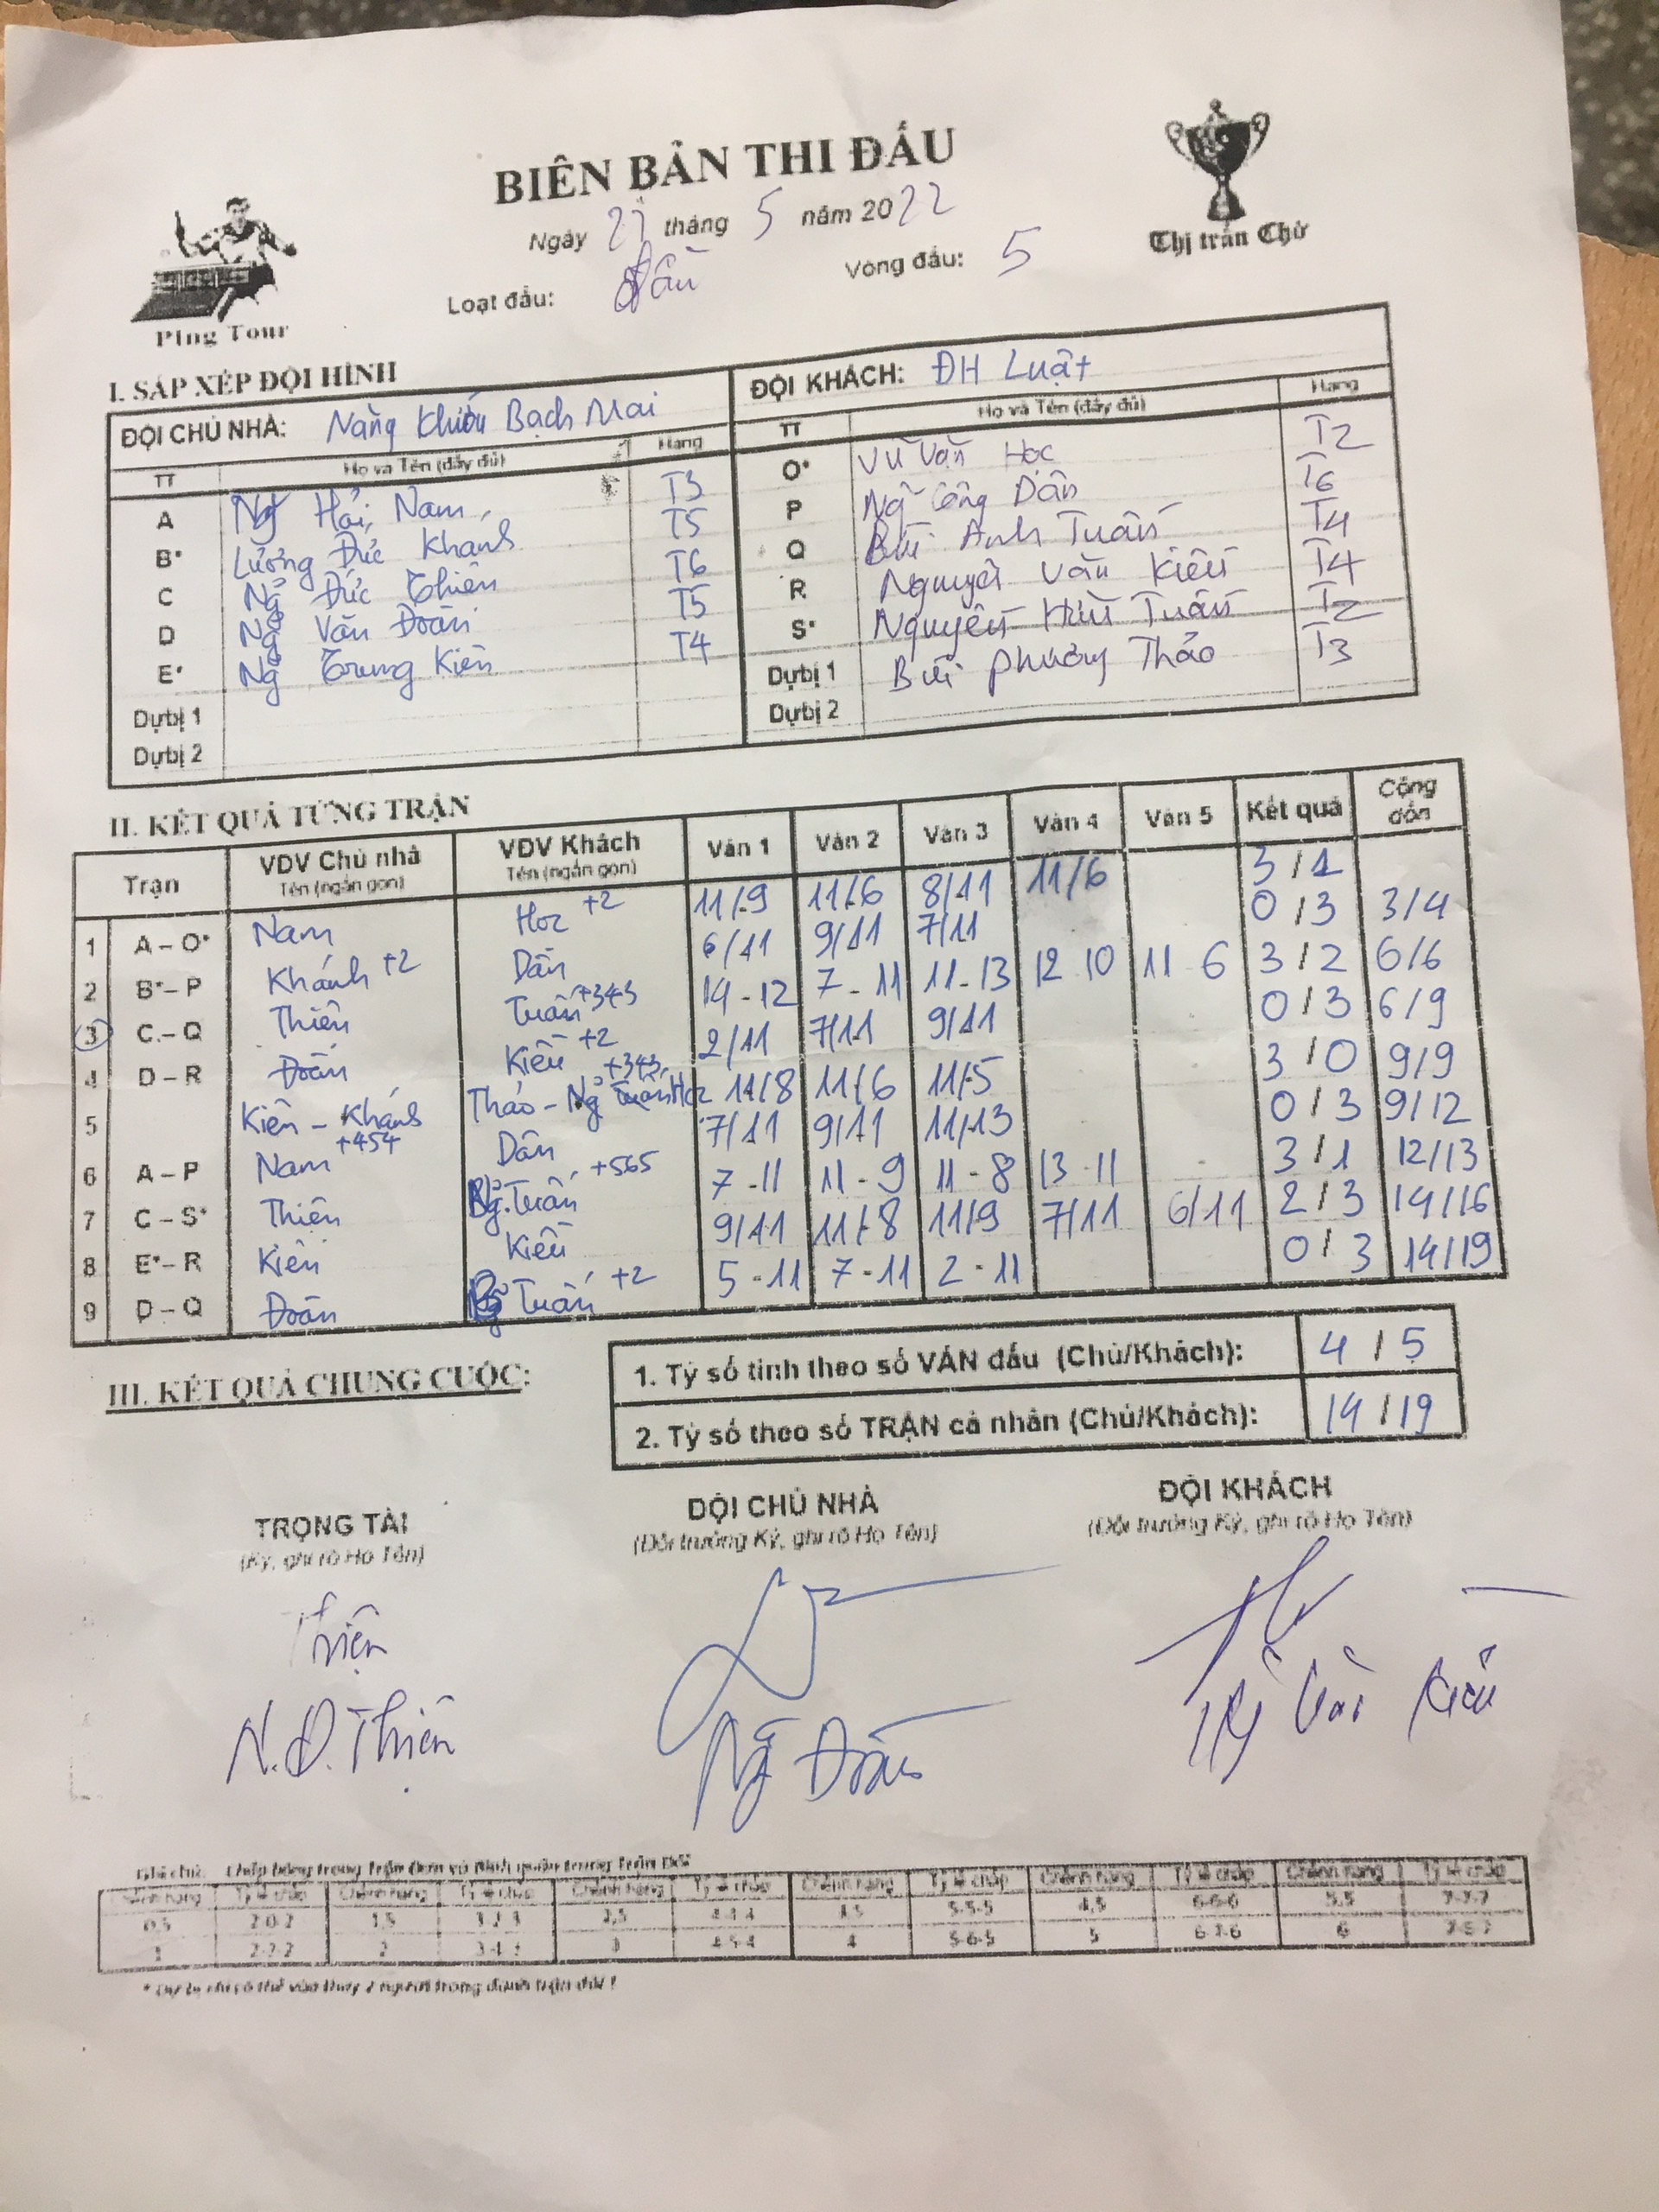 BIÊN BẢN THI ĐẤU
Ngày 21 tháng 5 năm 2022
Loạt đấu: Vòng đấu: 5
Ping Tour
Thị trấn Chờ
I. SẮP XẾP ĐỘI HÌNH
ĐỘI CHỦ NHÀ: Năng Khiếu Bạch Mai ĐỘI KHÁCH: ĐH Luật
TT Họ và Tên (đầy đủ) Hạng TT Họ và Tên (đầy đủ) Hạng
A Ng Hải Nam T3 O* Vũ Văn Học T2
B* Lương Đức Khánh T5 P Ng Công Dân T6
C Ng Đức Thiện T6 Q Bùi Anh Tuấn T4
D Ng Văn Đoàn T5 R Nguyễn Văn Kiều T4
E* Ng Trung Kiên T4 S* Nguyễn Hữu Tuấn T2
Dự bị 1 Dự bị 1 Bùi Phương Thảo T3
Dự bị 2 Dự bị 2
II. KẾT QUẢ TỪNG TRẬN
Trận VĐV Chủ nhà VĐV Khách Ván 1 Ván 2 Ván 3 Ván 4 Ván 5 Kết quả Cộng dồn
Tên (ngắn gọn) Tên (ngắn gọn)
1 A – O* Nam Học +2 11/9 11/6 8/11 11/6 3/1
2 B* – P Khánh +2 Dân 6/11 9/11 7/11 0/3 3/4
3 C – Q Thiện Tuấn +343 14-12 7-11 11-13 12 10 11 6 3/2 6/6
4 D – R Đoàn Kiều +2 2/11 7/11 9/11 0/3 6/9
5 Kiên – Khánh Thảo – Học +343 11/8 11/6 11/5 3/0 9/9
6 A – P Nam +454 Dân 7/11 9/11 11/13 0/3 9/12
7 C – S* Thiện Ng. Tuấn +565 7-11 11-9 11-8 13-11 3/1 12/13
8 E* – R Kiên Kiều 9/11 11/8 11/9 7/11 6/11 2/3 14/16
9 D – Q Đoàn Tuấn +2 5-11 7-11 2-11 0/3 14/19
III. KẾT QUẢ CHUNG CUỘC:
1. Tỷ số tính theo số VÁN đấu (Chủ/Khách): 4/5
2. Tỷ số theo số TRẬN cá nhân (Chủ/Khách): 14/19
TRỌNG TÀI ĐỘI CHỦ NHÀ ĐỘI KHÁCH
(Ký, ghi rõ Họ Tên) (Đội trưởng Ký, ghi rõ Họ Tên) (Đội trưởng Ký, ghi rõ Họ Tên)
Thiện
N.Đ.Thiện Ng Đoàn Văn Kiều
Ghi chú: Chấp bóng trong trận Đơn và Bình quân trong trận Đôi
Chênh hạng Tỷ lệ chấp Chênh hạng Tỷ lệ chấp Chênh hạng Tỷ lệ chấp Chênh hạng Tỷ lệ chấp Chênh hạng Tỷ lệ chấp Chênh hạng Tỷ lệ chấp
0,5 2-0-2 1,5 3-2-3 2,5 4-4-4 3,5 5-5-5 4,5 6-6-6 5,5 7-7-7
1 2-2-2 2 3-4-3 3 4-5-4 4 5-6-5 5 6-7-6 6
* Dự bị chỉ có thể vào thay 2 người trong danh sách